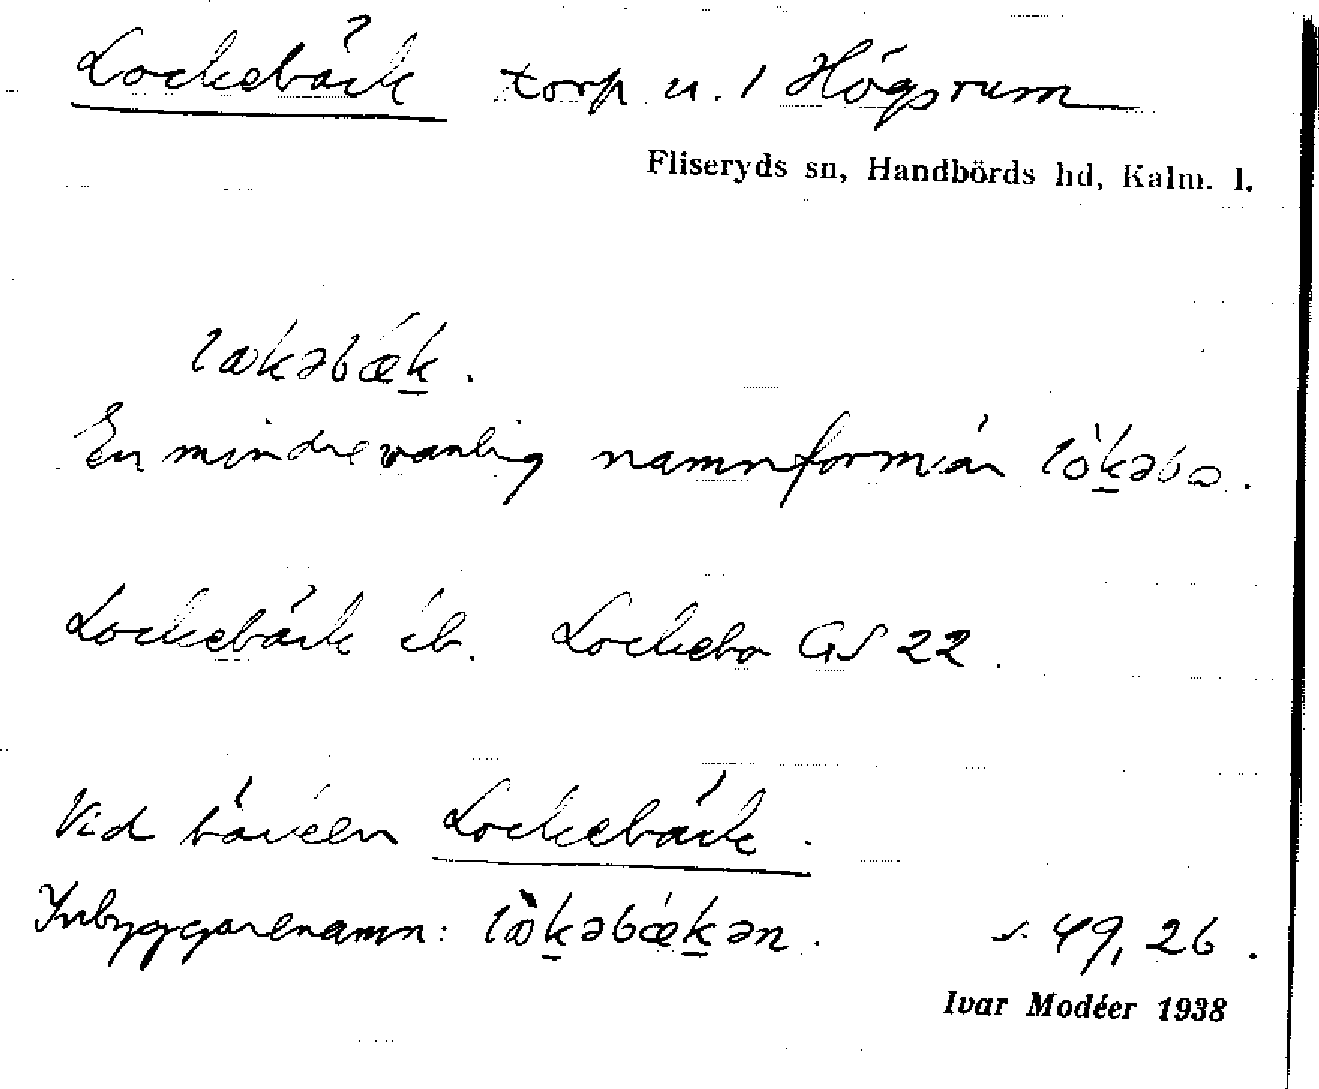 Lockebäck torp u. / Högsrum
Fliseryds sn, Handbörds hd, Kalm. l.
lækəbǽk.
En mindre vanlig namnform är lòkəbo.
Lockebäck ib. Lockebo GS 22.
Vid bäcken Lockebäck.
Inbyggarenamn: lækəbækən. s. 49, 26.
Ivar Modéer 1938